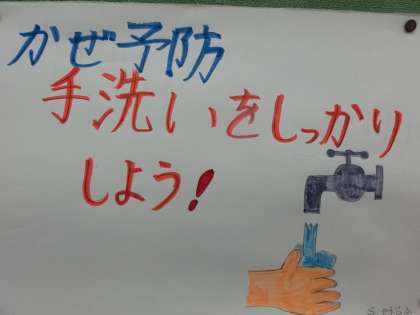 かぜ予防
手洗いをしっかり
しよう!